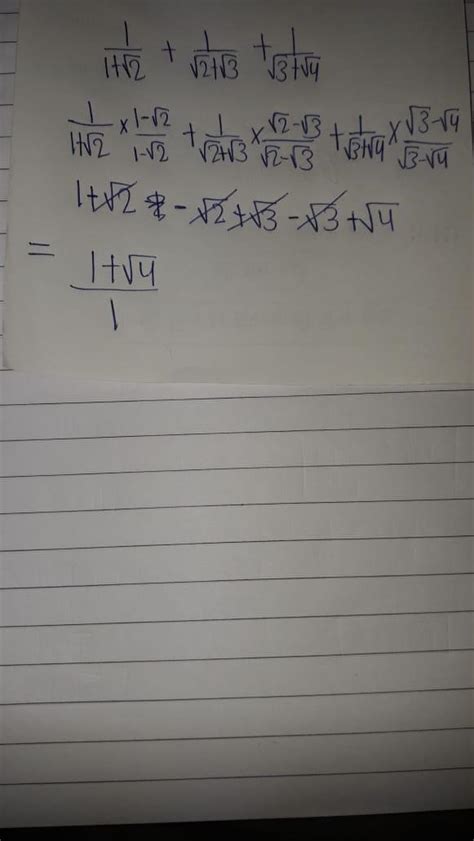 1/(1+√2) + 1/(√2+√3) + 1/(√3+√4)
1/(1+√2) × (1-√2)/(1-√2) + 1/(√2+√3) × (√2-√3)/(√2-√3) + 1/(√3+√4) × (√3-√4)/(√3-√4)
1+√2 - √2+√3 - √3+√4
= (1+√4)/1